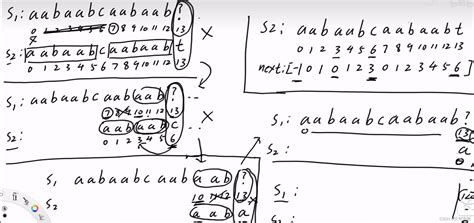 S1: aabaabcaabaab?
0 1 2 3 4 5 6 7 8 9 10 11 12 13
S2: aabaabcaabaabt
0 1 2 3 4 5 6 7 8 9 10 11 12 13
S1: aabaabcaabaab?
7 8 9 10 11 12 13
S2: aabaabc
0 1 2 3 4 5 6
S1 aabaabcaabaab?
10 11 12 13
S2 aaba
S2: aabaabcaabaabt
0 1 2 3 4 5 6 7 8 9 10 11 12 13
next:[-1 0 1 0 2 3 0 6]
S1: aabaabcaabaab?
13
S2: a
S1:
S2: